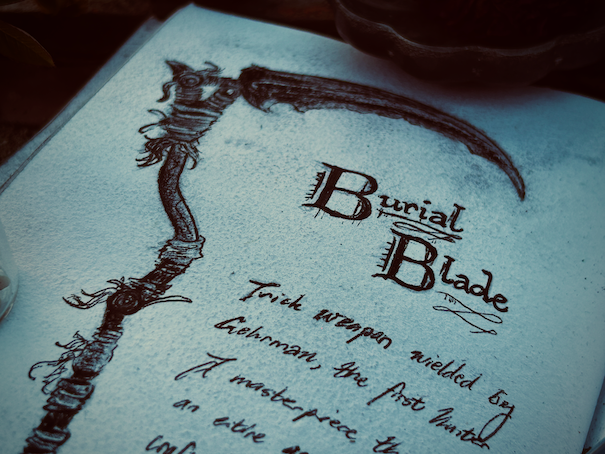 Burial
Blade
Trick weapon wielded by
Gehrman, the first Hunter
A masterpiece th
an entire